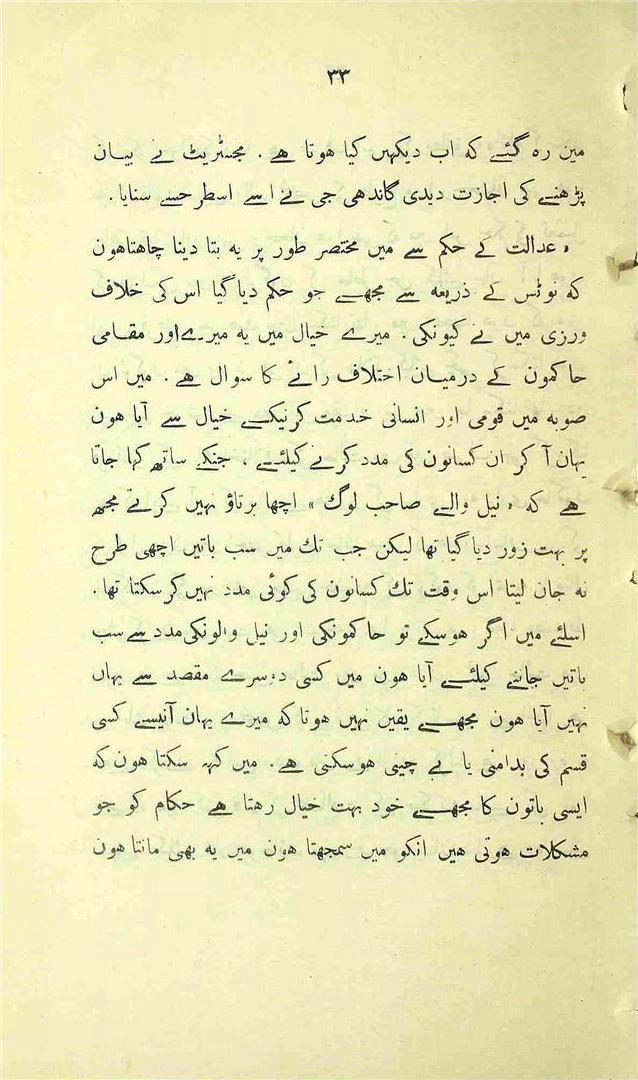 ۳۳
مین رہ گئے کہ اب دیکھیں کیا ہوتا ہے ۔ مجسٹریٹ نے بیان
پڑھنے کی اجازت دیدی گاندھی جی نے اسے اسطرحسے سنایا ۔
« عدالت کے حکم سے میں مختصر طور پر یہ بتا دینا چاہتاہون
کہ نوٹس کے ذریعہ سے مجھے جو حکم دیا گیا اس کی خلاف
ورزی میں نے کیونکی ۔ میرے خیال میں یہ میرے اور مقامی
حاکمون کے درمیان اختلاف رائے کا سوال ہے ۔ میں اس
صوبہ میں قومی اور انسانی خدمت کرنیکے خیال سے آیا ہون
یہان آ کر ان کسانون کی مدد کرنے کیلئے ، جنکے ساتھ کہا جاتا
ہے کہ « نیل والے صاحب لوگ » اچھا برتاؤ نہیں کرتے مجھ
پر بہت زور دیا گیا تھا لیکن جب تك میں سب باتیں اچھی طرح
نہ جان لیتا اس وقت تك کسانون کی کوئی مدد نہیں کر سکتا تھا ۔
اسلئے میں اگر ہوسکے تو حاکمونکی اور نیل والونکی مدد سے سب
باتیں جاننے کیلئے آیا ہون میں کسی دوسرے مقصد سے یہاں
نہیں آیا ہون مجھے یقیں نہیں ہوتا کہ میرے یہان آنیسے کسی
قسم کی بدامنی یا بے چینی ہوسکتی ہے ۔ میں کہہ سکتا ہون کہ
ایسی باتون کا مجھے خود بہت خیال رہتا ہے حکام کو جو
مشکلات ہوتی ہیں انکو میں سمجھتا ہون میں یہ بھی مانتا ہون